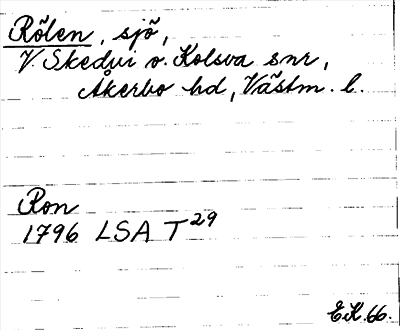 Rölen, sjö,
V. Skedvi o. Kolsva snr,
Åkerbo hd, Västm. l.
Ron
1796 LSA T29
E.K. 66.